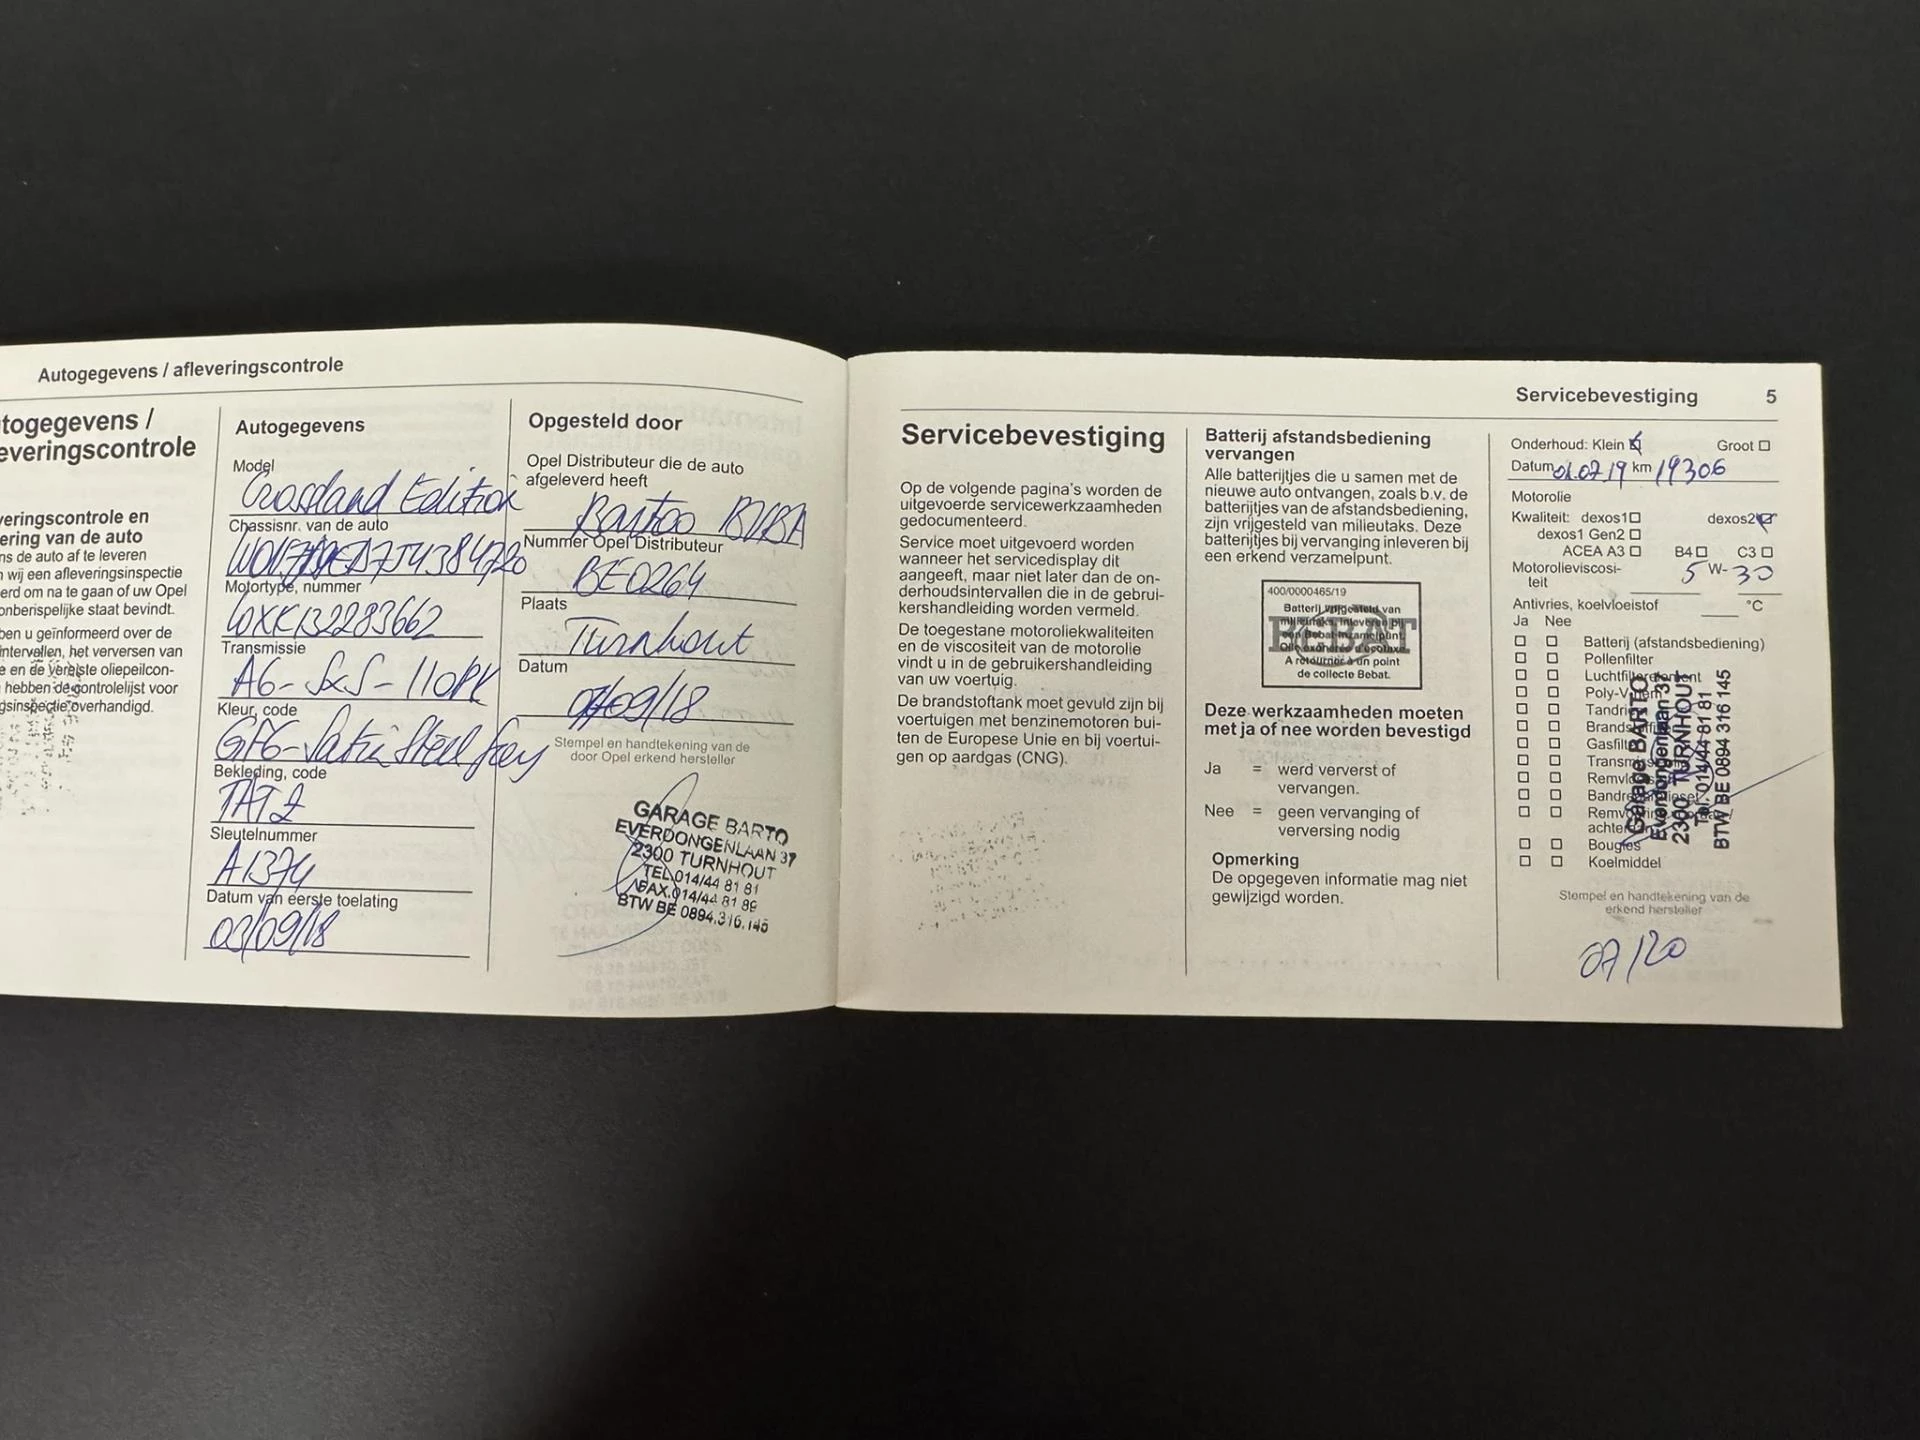 Autogegevens / afleveringscontrole
togegevens /
everingscontrole
veringscontrole en
ering van de auto
ns de auto af te leveren
n wij een afleveringsinspectie
erd om na te gaan of uw Opel
onberispelijke staat bevindt.
ben u geïnformeerd over de
intervellen, het verversen van
e en de vereiste oliepeilcon-
hebben de controlelijst voor
gsinspectie overhandigd.
Autogegevens
Model
Crossland Edition
Chassisnr. van de auto
Motortype, nummer
Transmissie
A6-SxS-110PK
Kleur, code
Satin Steel Grey
Bekleding, code
TAT2
Sleutelnummer
A1374
Datum van eerste toelating
03/09/18
Opgesteld door
Opel Distributeur die de auto
afgeleverd heeft
Bartoo BVBA
Nummer Opel Distributeur
BE0264
Plaats
Turnhout
Datum
07/09/18
Stempel en handtekening van de
door Opel erkend hersteller
GARAGE BARTO
EVERDONGENLAAN 37
2300 TURNHOUT
TEL.014/44 81 81
FAX.014/44 81 89
BTW BE 0894.316.145
Servicebevestiging 5
Servicebevestiging
Op de volgende pagina's worden de
uitgevoerde servicewerkzaamheden
gedocumenteerd.
Service moet uitgevoerd worden
wanneer het servicedisplay dit
aangeeft, maar niet later dan de on-
derhoudsintervallen die in de gebrui-
kershandleiding worden vermeld.
De toegestane motoroliekwaliteiten
en de viscositeit van de motorolie
vindt u in de gebruikershandleiding
van uw voertuig.
De brandstoftank moet gevuld zijn bij
voertuigen met benzinemotoren bui-
ten de Europese Unie en bij voertui-
gen op aardgas (CNG).
Batterij afstandsbediening
vervangen
Alle batterijtjes die u samen met de
nieuwe auto ontvangen, zoals b.v. de
batterijtjes van de afstandsbediening,
zijn vrijgesteld van milieutaks. Deze
batterijtjes bij vervanging inleveren bij
een erkend verzamelpunt.
400/0000465/19
BEBAT
Batterij vrijgesteld van
milieutaks, inleveren bij
een Bebat-inzamelpunt.
Pile exonérée d'écotaxe.
A retourner à un point
de collecte Bebat.
Deze werkzaamheden moeten
met ja of nee worden bevestigd
Ja = werd ververst of
vervangen.
Nee = geen vervanging of
verversing nodig
Opmerking
De opgegeven informatie mag niet
gewijzigd worden.
Onderhoud: Klein Groot
Datum 01.07.19 km 19306
Motorolie
Kwaliteit: dexos1 dexos2
dexos1 Gen2
ACEA A3 B4 C3
Motorolieviscosi-
teit 5 W- 30
Antivries, koelvloeistof °C
Ja Nee
Batterij (afstandsbediening)
Pollenfilter
Luchtfilterelement
Poly-V-riem
Tandri
Brandstoffilter
Gasfilter
Transmis
Remvloeistof
Bandre
Remv
achter
Bougies
Koelmiddel
Garage BARTO
Everdongenlaan 37
2300 TURNHOUT
Tel. 014/44 81 81
BTW BE 0894 316 145
Stempel en handtekening van de
erkend hersteller
07/20